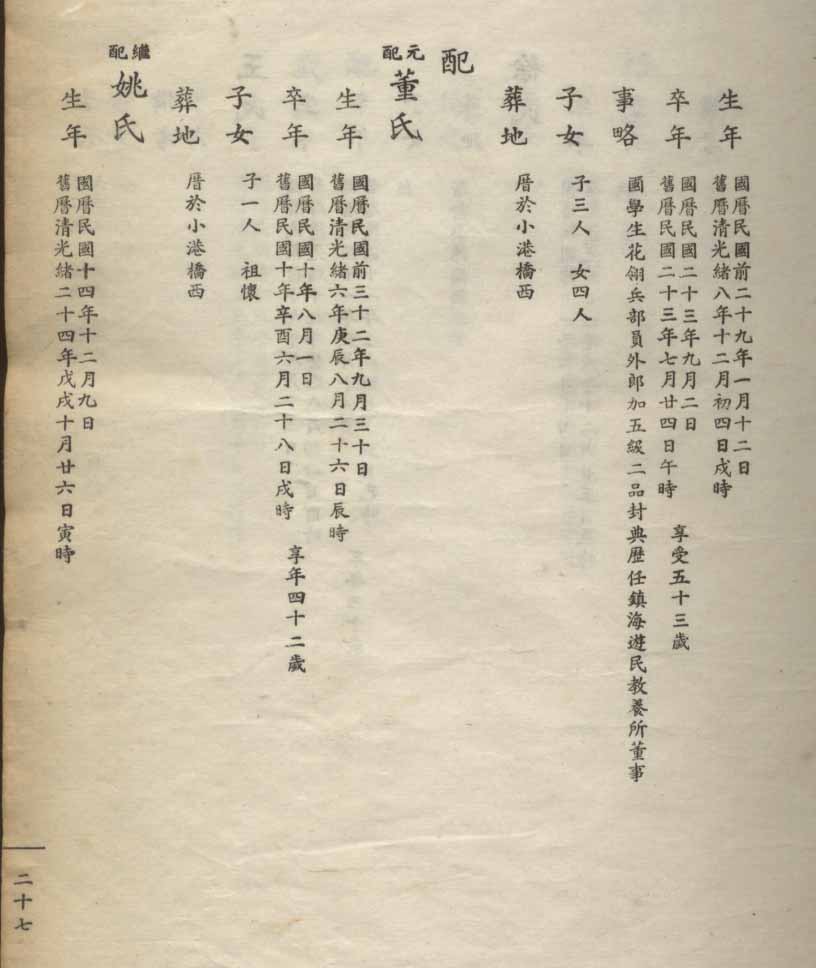 生年
國曆民國前二十九年一月十二日
舊曆清光緒八年十二月初四日戌時
卒年
國曆民國二十三年九月二日
舊曆民國二十三年七月廿四日午時
享受五十三歲
事略
國學生花翎兵部員外郎加五級二品封典歷任鎮海遊民教養所董事
子女
子三人 女四人
葬地
厝於小港橋西
配
元配
董氏
生年
國曆民國前三十二年九月三十日
舊曆清光緒六年庚辰八月二十六日辰時
卒年
國曆民國十年八月一日
舊曆民國十年辛酉六月二十八日戌時
享年四十二歲
子女
子一人 祖懷
葬地
厝於小港橋西
繼配
姚氏
生年
國曆民國十四年十二月九日
舊曆清光緒二十四年戊戌十月廿六日寅時
二十七